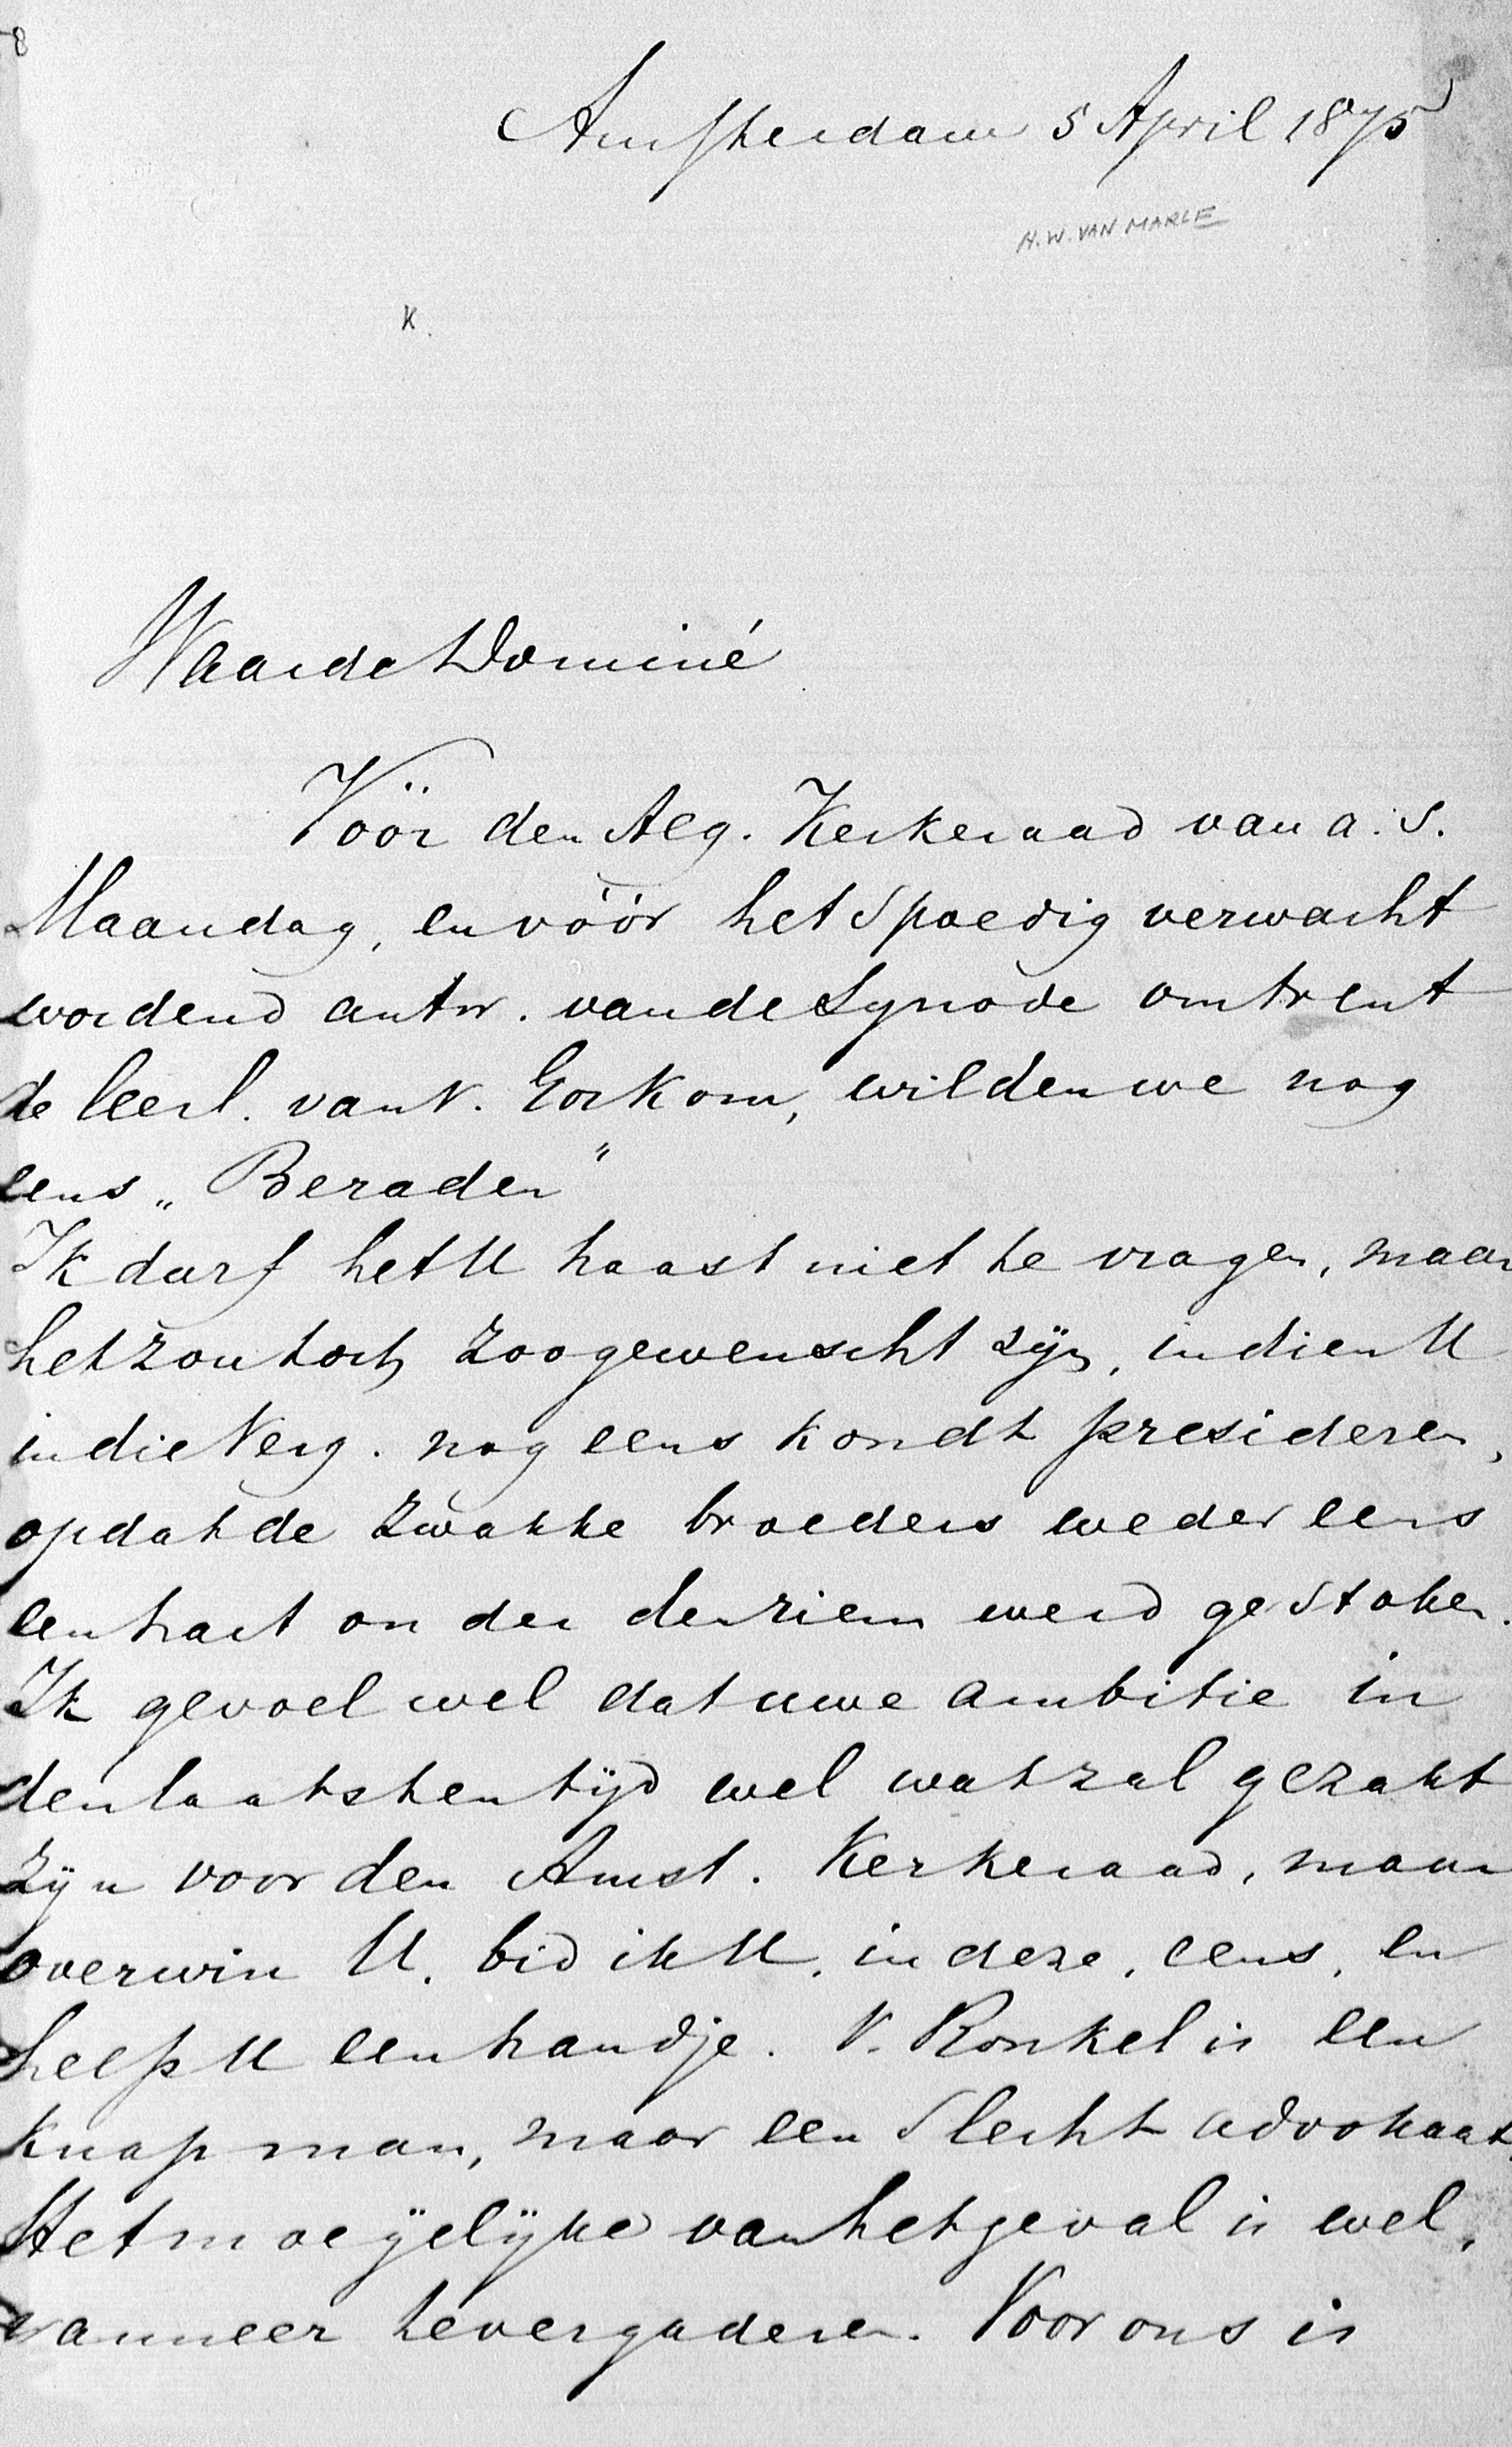 8
Amsterdam 5 April 1875
H. W. VAN MARLE
K.
Waarde Dominé
Vöör den Alg. Kerkeraad van a. s.
Maandag, en vóór het spoedig verwacht
wordend antw. van de Synode omtrent
de leerl. van V. Gorkom, wilden we nog
eens „Beraden"
Ik durf het U haast niet te vragen, maar
het zou toch zoo gewenscht zijn, indien U
in die Verg. nog eens kondt presideren,
opdat de zwakke broeders weder eens
een hart onder den riem werd gestoken.
Ik gevoel wel dat uwe ambitie in
den laatsten tijd wel wat zal gezakt
zijn voor den Amst. Kerkeraad, maar
overwin U, bid ik U, in deze, eens, en
help U een handje. V. Ronkel is een
knap man, maar een slecht advokaat.
Het moeÿelÿke van het geval is wel,
wanneer te vergaderen. Voor ons is